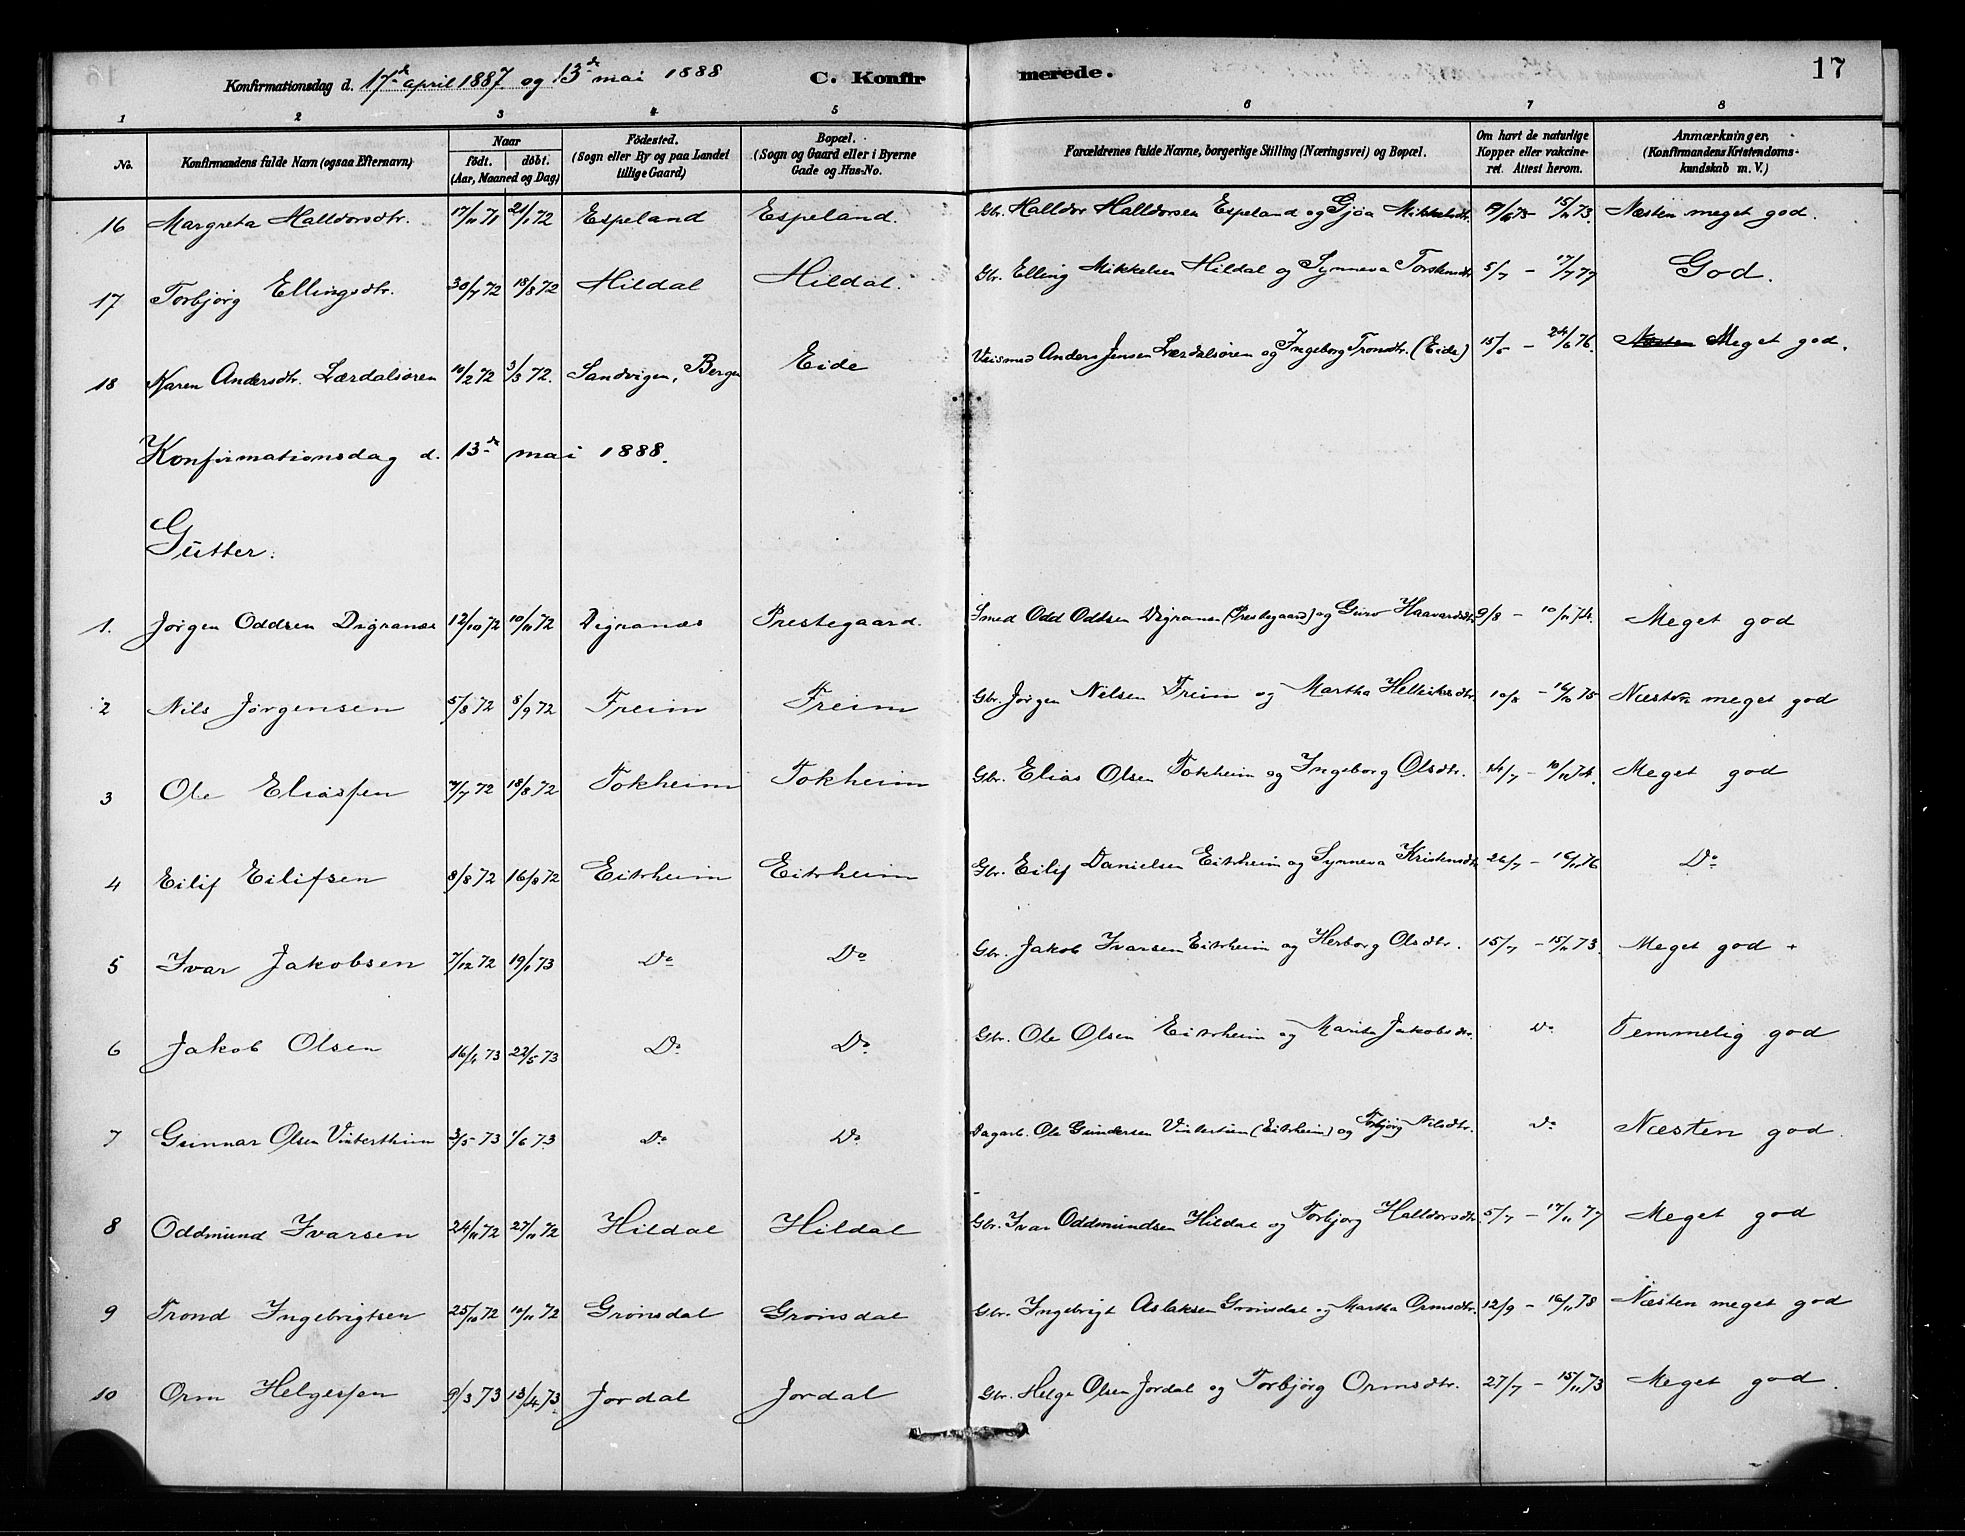 Konfirmationsdag d. 17de april 1887. og 13de mai 1888 C. Konfirmerede. 17
1 2 3 4 5 6 7 8
No. Konfirmandens fulde Navn (ogsaa Efternavn) Naar födt. döbt. (Aar, Maaned og Dag) Födested. (Sogn eller By og paa Landet tillige Gaard) Bopæl. (Sogn og Gaard eller i Byerne Gade og Hus-No. Forældrenes fulde Navne, borgerlige Stilling (Næringsvei) og Bopæl. Om havt de naturlige Kopper eller vakcineret. Attest herom. Anmærkninger. (Konfirmandens Kristendomskundskab m. V.)
16 Margreta Halldorsdtr. 17/11 71 21/1 72 Espeland Espeland. Gbr. Halldor Halldorsen Espeland og Gjøa Mikkelsdtr. 15/11 73. Næsten meget god.
17 Torbjørg Ellingsdtr. 30/7 72 18/8 72 Hildal Hildal. Gbr. Elling Mikkelsen Hildal og Synneva Torstensdtr. 5/7 – 17/7 77 God.
18 Karen Andersdtr. Lærdalsøren 10/2 72 3/3 72. Sandvigen, Bergen Eide Anders Jensen Lærdalsøren og Ingeborg Tronsdtr. (Eide) 15/5 – 24/6 76. Næsten Meget god.
Konfirmationsdag d. 13de mai 1888.
Gutter.
1. Jørgen Oddsen Digranæs 12/10 72 10/11 72 Digranæs Prestegaard. Smed Odd Oddsen Digranes (Prestegaard) og Guro Haavardsdtr. 9/8 – 10/11 74. Meget god
2 Nils Jørgensen 5/8 72 8/9 72 Freim Freim Gbr. Jørgen Nilsen Freim og Martha Helleiksdtr. 10/8 – 16/10 75 Næsten meget god
3 Ole Eliassen 7/7 72 18/8 72 Tokheim Tokheim Gbr. Elias Olsen Tokheim og Ingeborg Olsdtr. 14/7 – 10/11 74. Meget god
4 Eilif Eilifsen 8/8 72 16/8 72 Eitrheim Eitrheim Gbr. Eilif Danielsen Eitrheim og Synneva Kristensdtr. 26/7 – 16/11 76 Do
5 Ivar Jakobsen 7/12 72 19/1 73 Do Do Gbr. Jakob Ivarsen Eitrheim og Herborg Olsdtr. 15/7 – 15/11 73. Meget god +
6 Jakob Olsen 16/4 73 22/5 73 Do Do. Gbr. Ole Olsen Eitrheim og Marita Jakobsdtr. Do Temmelig god
7 Gunnar Olsen Vinterthun 3/5 73 1/6 73 Do Do Dagarb. Ole Gundersen Vintertun (Eitrheim) og Torbjørg Nilsdtr. Do Næsten god.
8 Oddmund Ivarsen 24/11 72 27/11 72 Hildal Hildal Gbr. Ivar Oddmundsen Hildal og Torbjørg Halldorsdtr. 5/7 – 17/11 77 Meget god
9 Trond Ingebrigtsen 25/10 72 10/11 72 Grønsdal Grønsdal Gbr. Ingebrigt Aslaksen Grønsdal og Martha Ormsdtr. 12/9 – 16/11 78 Næsten meget god
10 Orm Helgessen 9/3 73 13/4 73 Jordal Jordal Gbr. Helge Olsen Jordal og Torbjørg Ormsdtr. 27/7 – 15/11 73 Meget god.